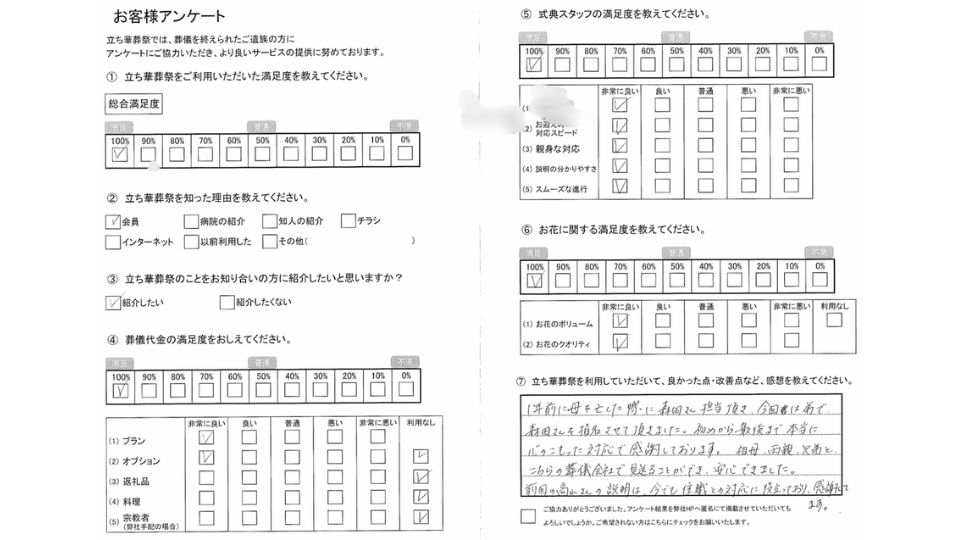 お客様アンケート
立ち華葬祭では、葬儀を終えられたご遺族の方に
アンケートにご協力いただき、より良いサービスの提供に努めております。
① 立ち華葬祭をご利用いただいた満足度を教えてください。
総合満足度
満足 普通 不満
100% 90% 80% 70% 60% 50% 40% 30% 20% 10% 0%
② 立ち華葬祭を知った理由を教えてください。
会員 病院の紹介 知人の紹介 チラシ
インターネット 以前利用した その他( )
③ 立ち華葬祭のことをお知り合いの方に紹介したいと思いますか？
紹介したい 紹介したくない
④ 葬儀代金の満足度をおしえてください。
満足 普通 不満
100% 90% 80% 70% 60% 50% 40% 30% 20% 10% 0%
非常に良い 良い 普通 悪い 非常に悪い 利用なし
(1) プラン
(2) オプション
(3) 返礼品
(4) 料理
(5) 宗教者
(弊社手配の場合)
⑤ 式典スタッフの満足度を教えてください。
満足 普通 不満
100% 90% 80% 70% 60% 50% 40% 30% 20% 10% 0%
非常に良い 良い 普通 悪い 非常に悪い
(1)
(2) お迎え時
対応スピード
(3) 親身な対応
(4) 説明の分かりやすさ
(5) スムーズな進行
⑥ お花に関する満足度を教えてください。
満足 普通 不満
100% 90% 80% 70% 60% 50% 40% 30% 20% 10% 0%
非常に良い 良い 普通 悪い 非常に悪い 利用なし
(1) お花のボリューム
(2) お花のクオリティ
⑦ 立ち華葬祭を利用していただいて、良かった点・改善点など、感想を教えてください。
1年前に母を亡くした際に森田さん担当頂き、今回は弟で、
森田さんを指名させて頂きました。初めから最後まで本当に
心のこもった対応で感謝しております。祖母、両親、兄弟と、
こちらの葬儀会社で見送ることができ、安心できました。
前回の高山さんの説明は、今でも住職との対応に役立っており、感謝して
ます。
ご協力ありがとうございました。アンケート結果を弊社HPへ匿名にて掲載させていただいても
よろしいでしょうか。ご希望されない方はこちらにチェックをお願いいたします。